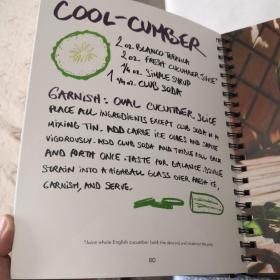 COOL-CUMBER
2 oz. BLANCO TEQUILA
2 oz. FRESH CUCUMBER JUICE*
3/4 oz. SIMPLE SYRUP
1 1/4 oz. CLUB SODA
GARNISH: OVAL CUCUMBER SLICE
PLACE ALL INGREDIENTS EXCEPT CLUB SODA IN A
MIXING TIN. ADD LARGE ICE CUBES AND SHAKE
VIGOROUSLY. ADD CLUB SODA AND TUMBLE ROLL BACK
AND FORTH ONCE. TASTE FOR BALANCE. DOUBLE
STRAIN INTO A HIGHBALL GLASS OVER FRESH ICE,
GARNISH, AND SERVE.
*Juice whole English cucumber (with the skin on) and strain out the pulp.
80